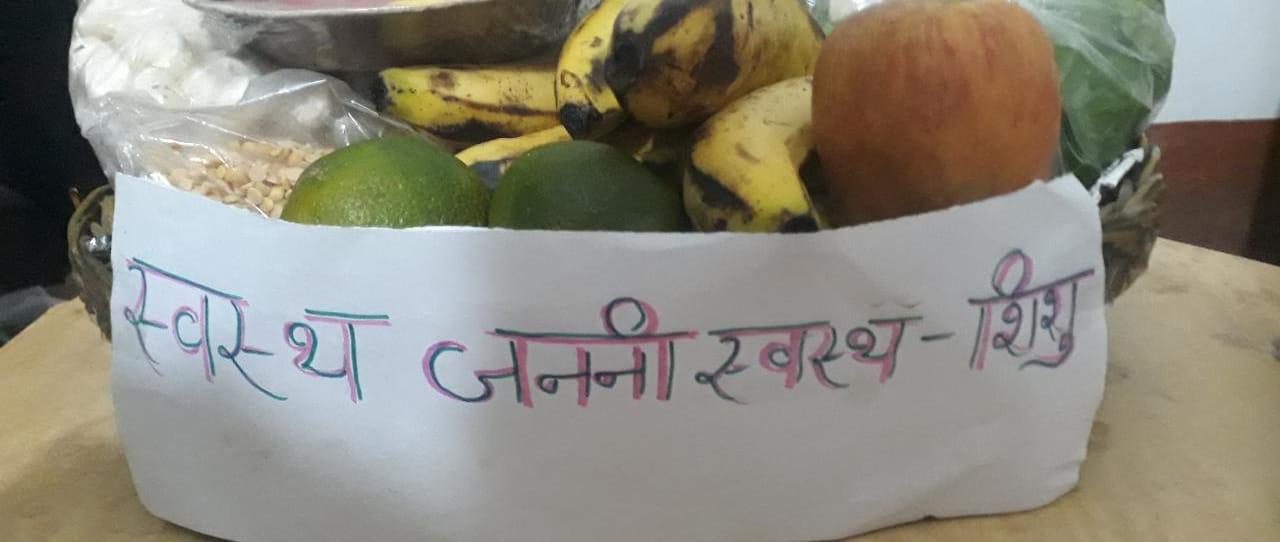 स्वस्थ जननी स्वस्थ - शिशु